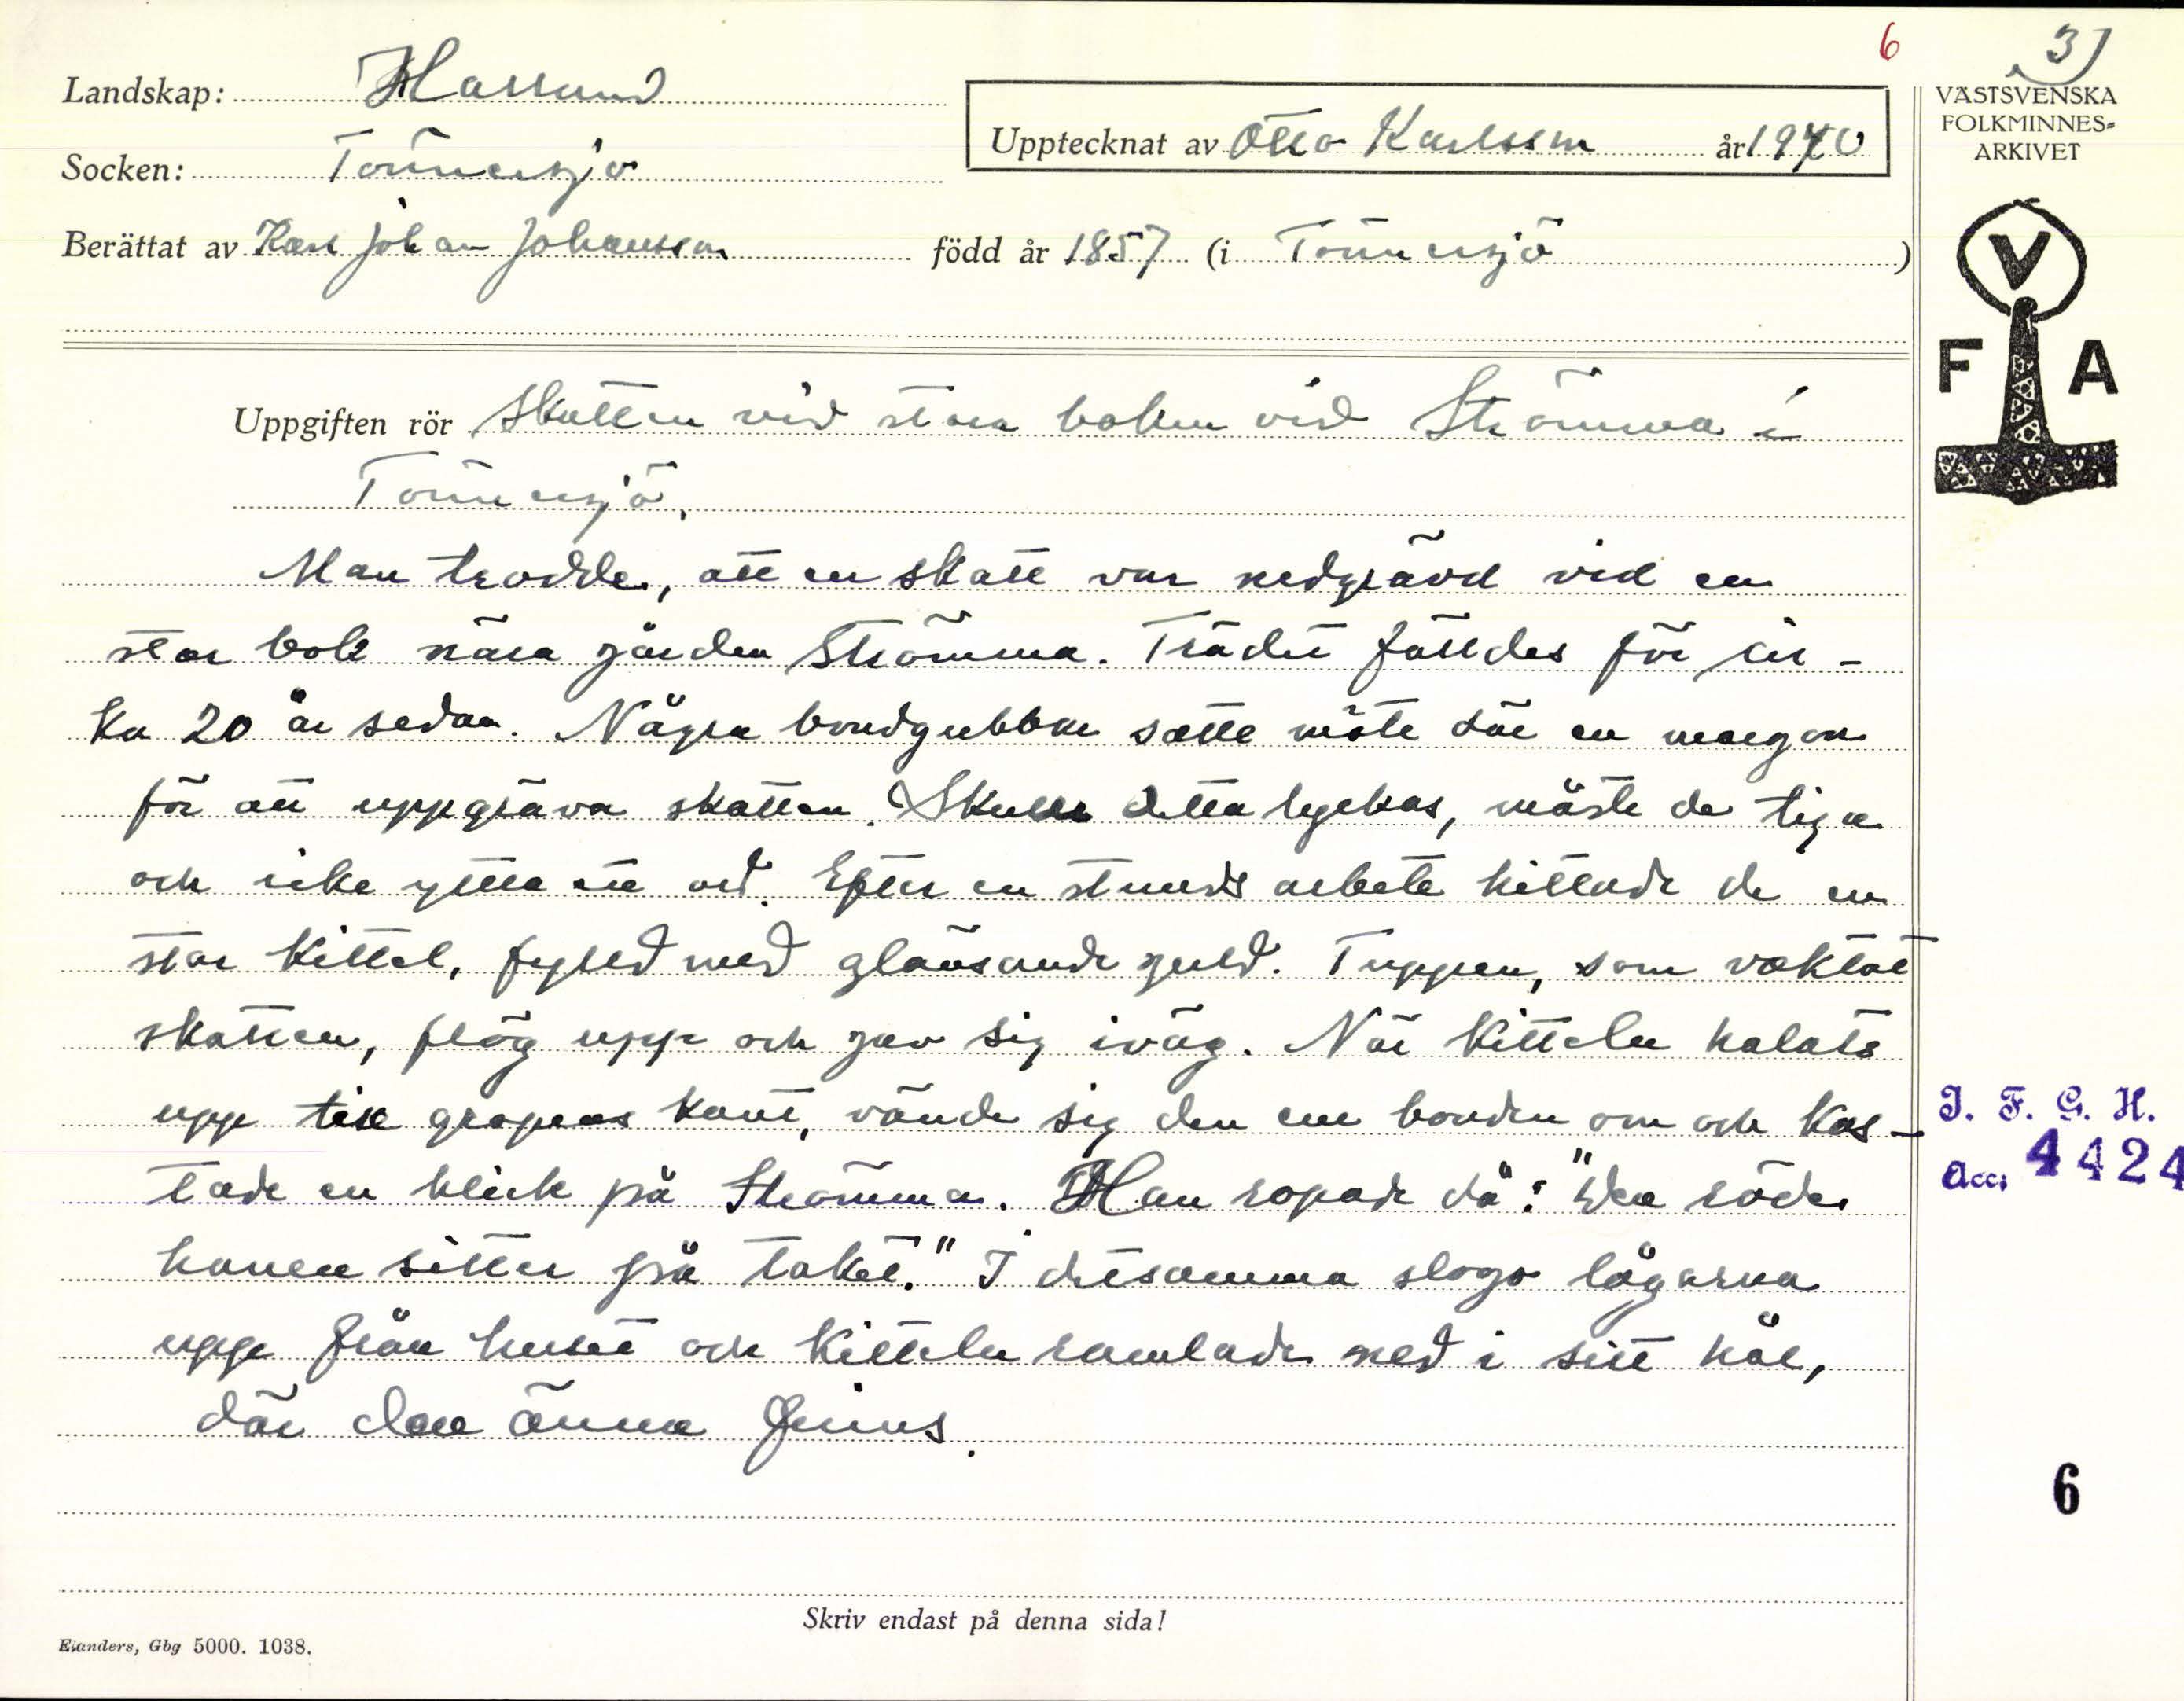 6
3)
Landskap: Halland
Upptecknat av Otto Karlsson år 1940
VÄSTSVENSKA
FOLKMINNES-
ARKIVET
Socken: Tönnersjö
Berättat av Karl Johan Johansson född år 1857 (i Tönnersjö)
V
F A
Uppgiften rör Skatten vid stora boken vid Strömma i
Tönnersjö.
Man trodde, att en skatt var nedgrävd vid en
stor bok nära gården Strömma. Trädet fälldes för cir-
ka 20 år sedan. Några bondgubbar satte möte där en morgon
för att uppgräva skatten. Skulle detta lyckas, måste de tiga
och icke yttra ett ord. Efter en stunds arbete hittade de en
stor kittel, fylld med glänsande guld. Tuppen, som vaktat
skatten, flög upp och gav sig iväg. När kitteln halats
upp till gropens kant, vände sig den ene bonden om och kas-
tade en blick på Strömma. Han ropade då: "Den röde
hanen sitter på taket." I detsamma slogo lågorna
upp från huset och kitteln ramlade ned i sitt hål,
där den ännu finns.
I. F. G. H.
Acc; 4424
6
Skriv endast på denna sida!
Elanders, Gbg 5000. 1038.